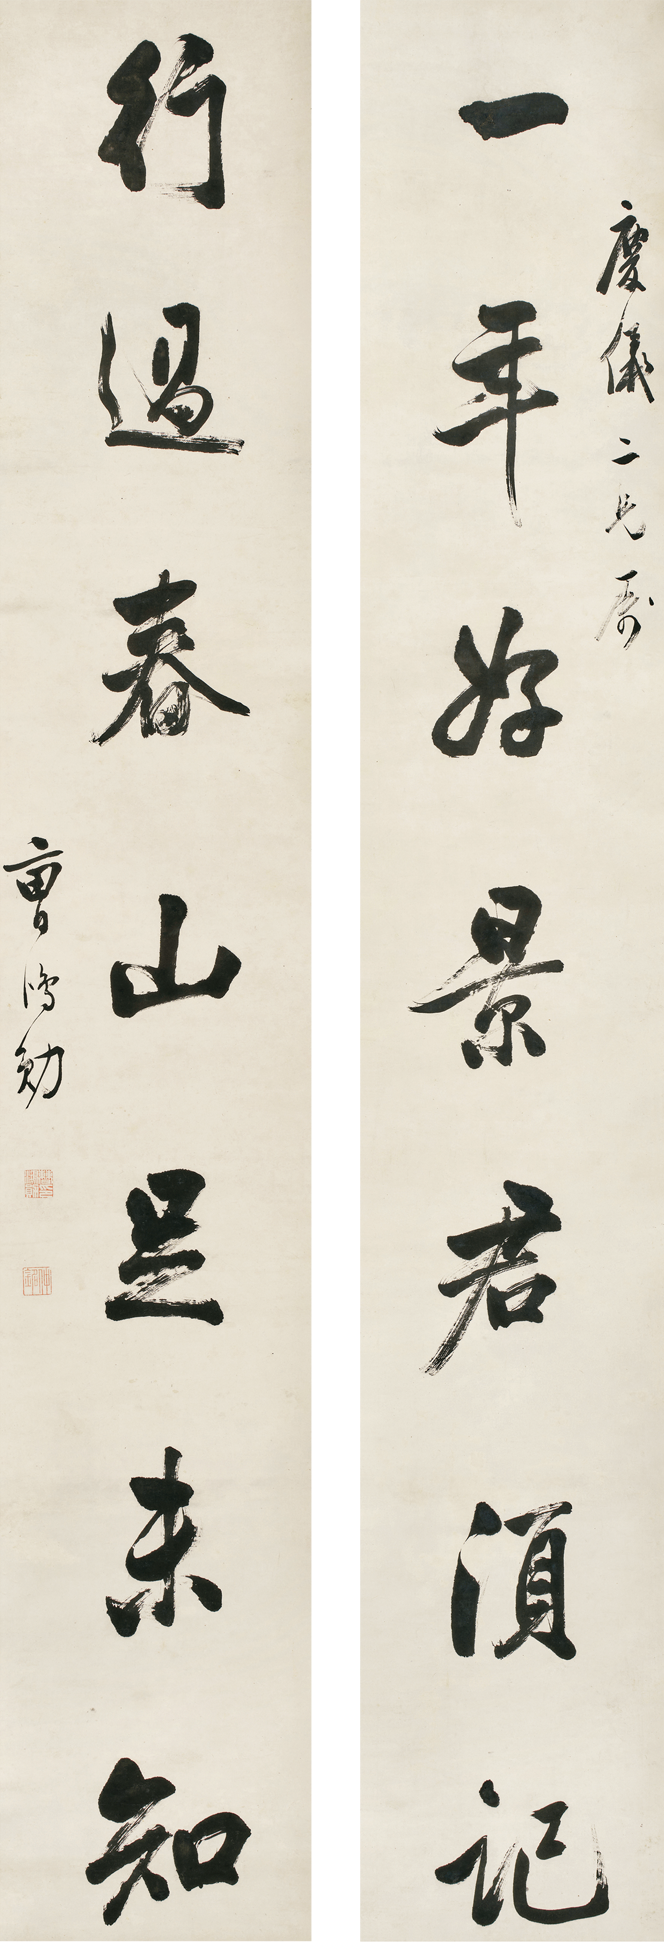 慶儀二兄
一年好景君須記
行過春山足未知
曹鴻勛